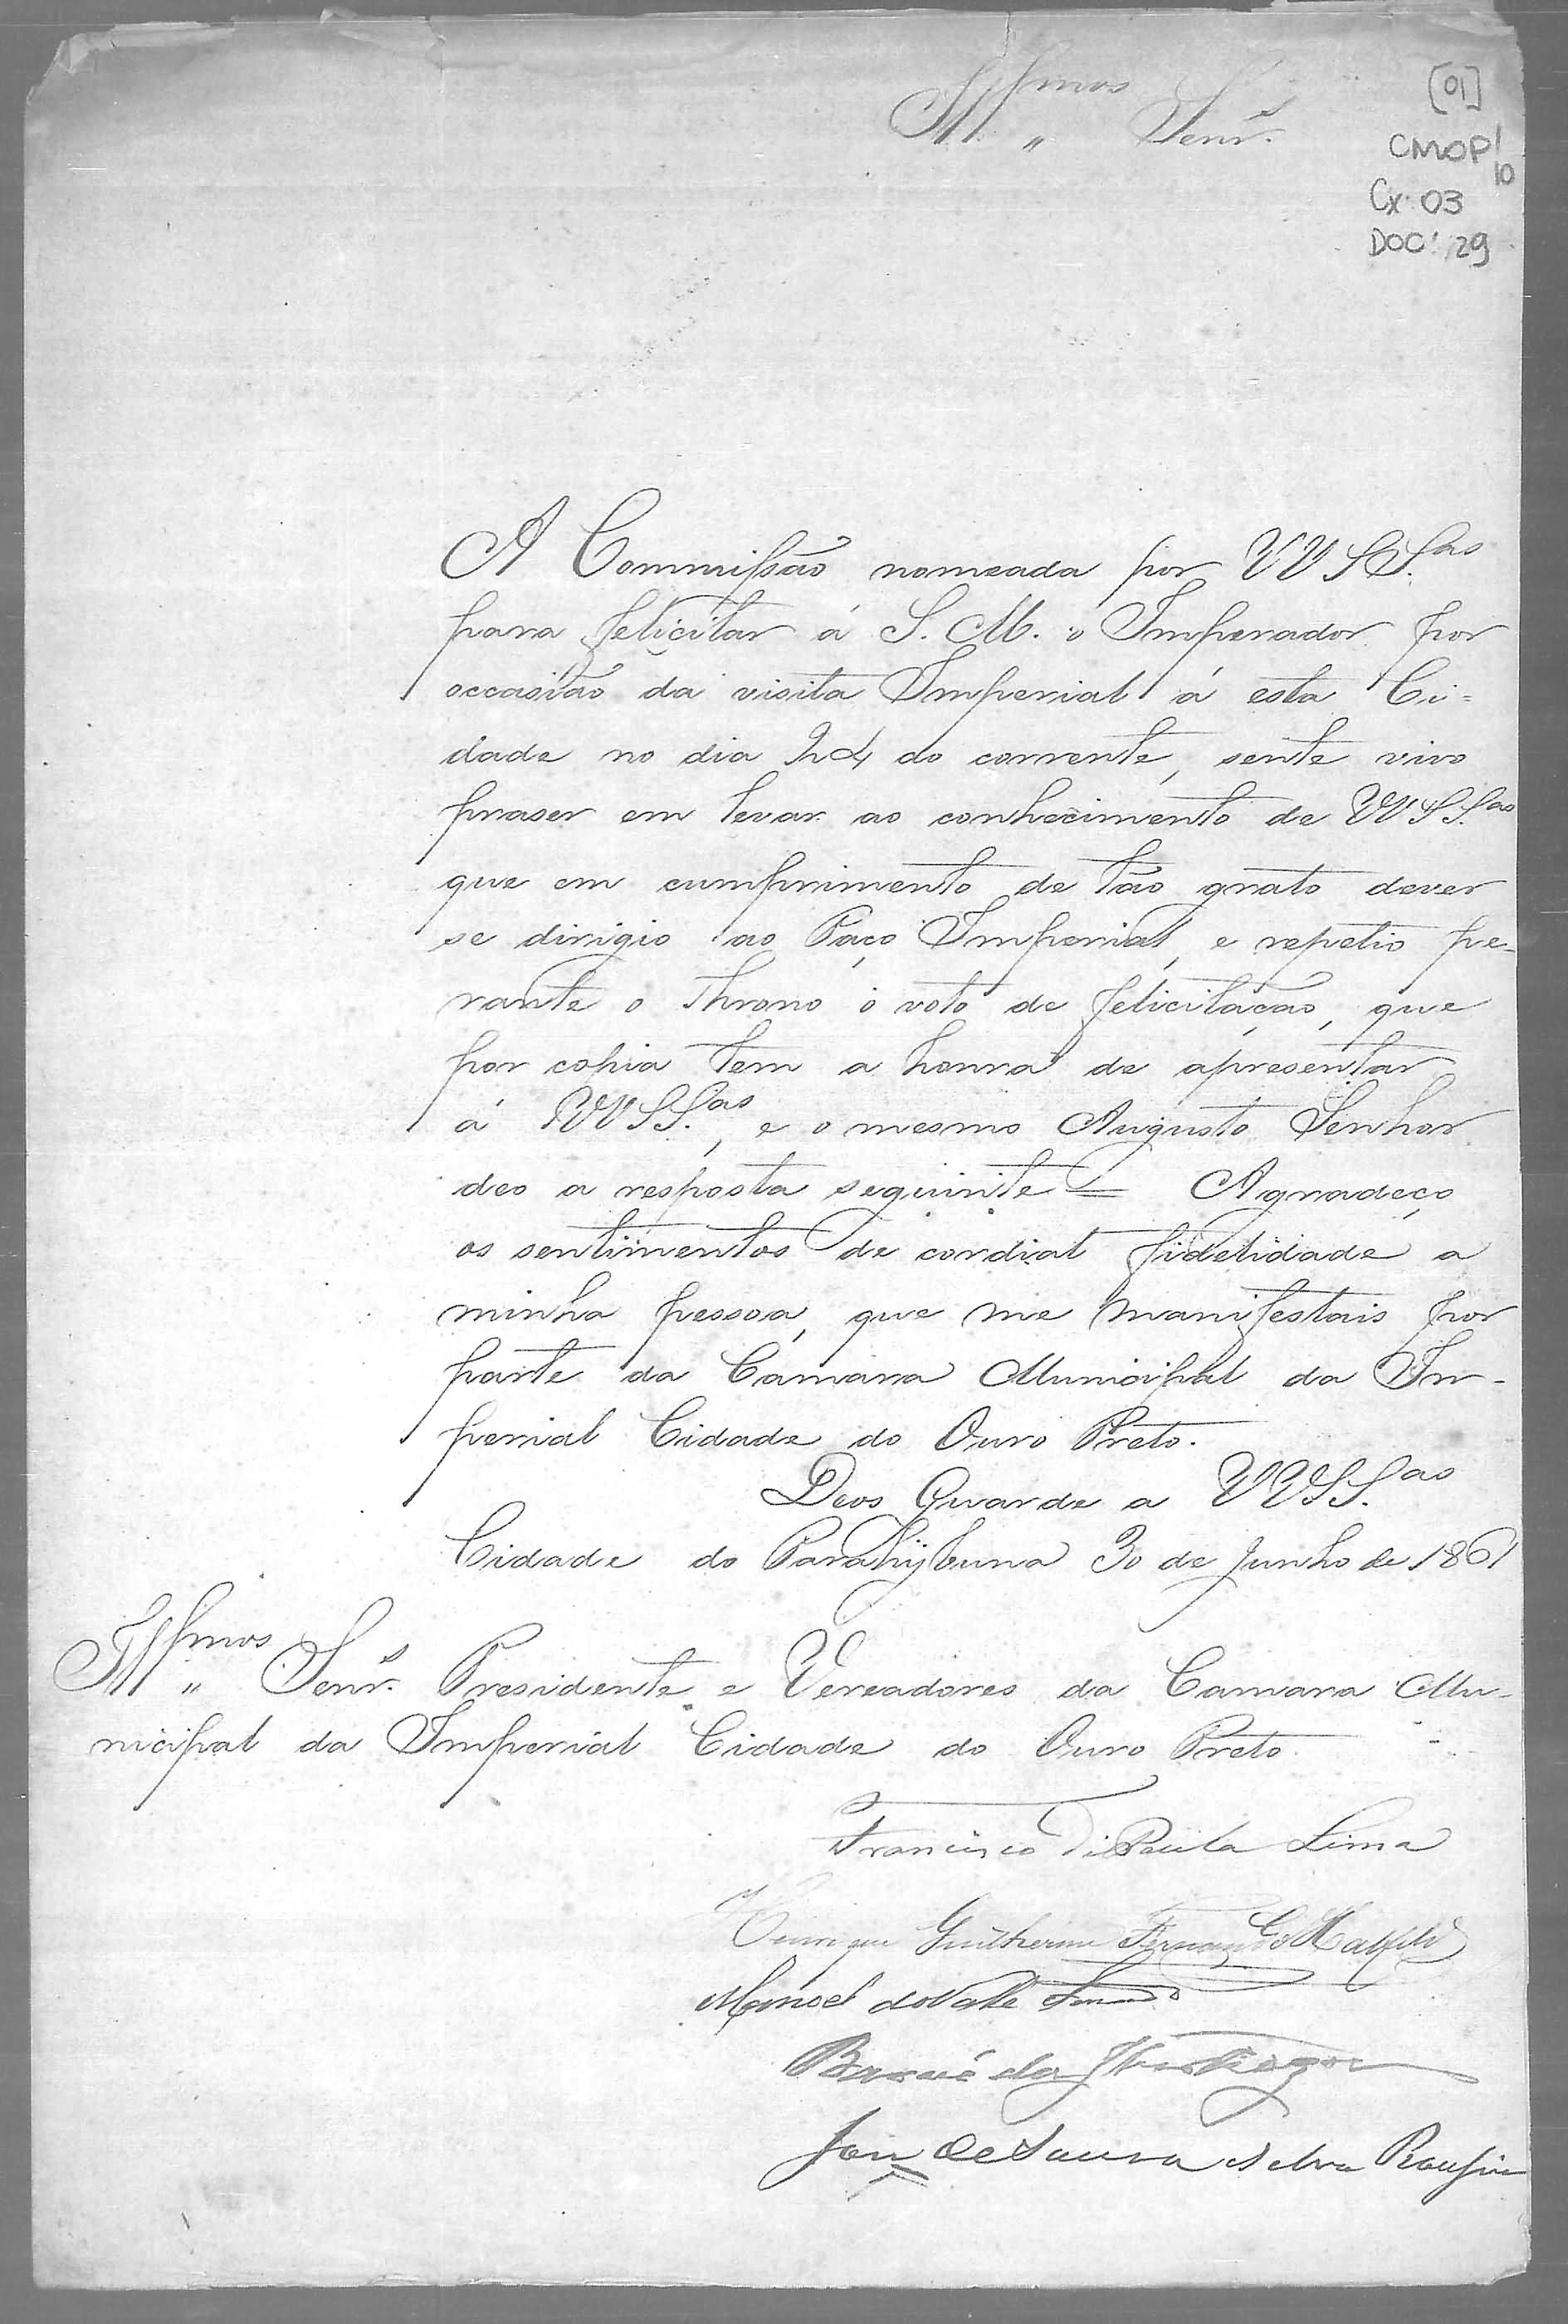 Illmos Senr.s
[01]
CMOP/
10
Cx: 03
DOC: 29
A Commissão nomeada por VVSS.as
para felicitar á S. M. o Imperador por
occasião da visita Imperial á esta Ci-
dade no dia 24 do corrente, sente vivo
praser em levar ao conhecimento de VVSS.as
que em cumprimento de tão grato dever
se dirigio ao Paço Imperial, e repetio pe-
rante o Throno o voto de felicitação, que
por copia tem a honra de apresentar
á VVSS.as, e o mesmo Augusto Senhor
deo a resposta seguinte = Agradeço
os sentimentos de cordial fidelidade a
minha pessoa, que me manifestais por
parte da Camara Municipal da Im-
perial Cidade do Ouro Preto.
Deos Guarde a VVSS.as
Cidade do Parahybuna 30 de Junho de 1861
Illmos Senr.s Presidente e Vereadores da Camara Mu-
nicipal da Imperial Cidade do Ouro Preto.
Francisco de Paula Lima
Henrique Guilherme Fernando Halfeld
Manoel do Valle
Barão da
de